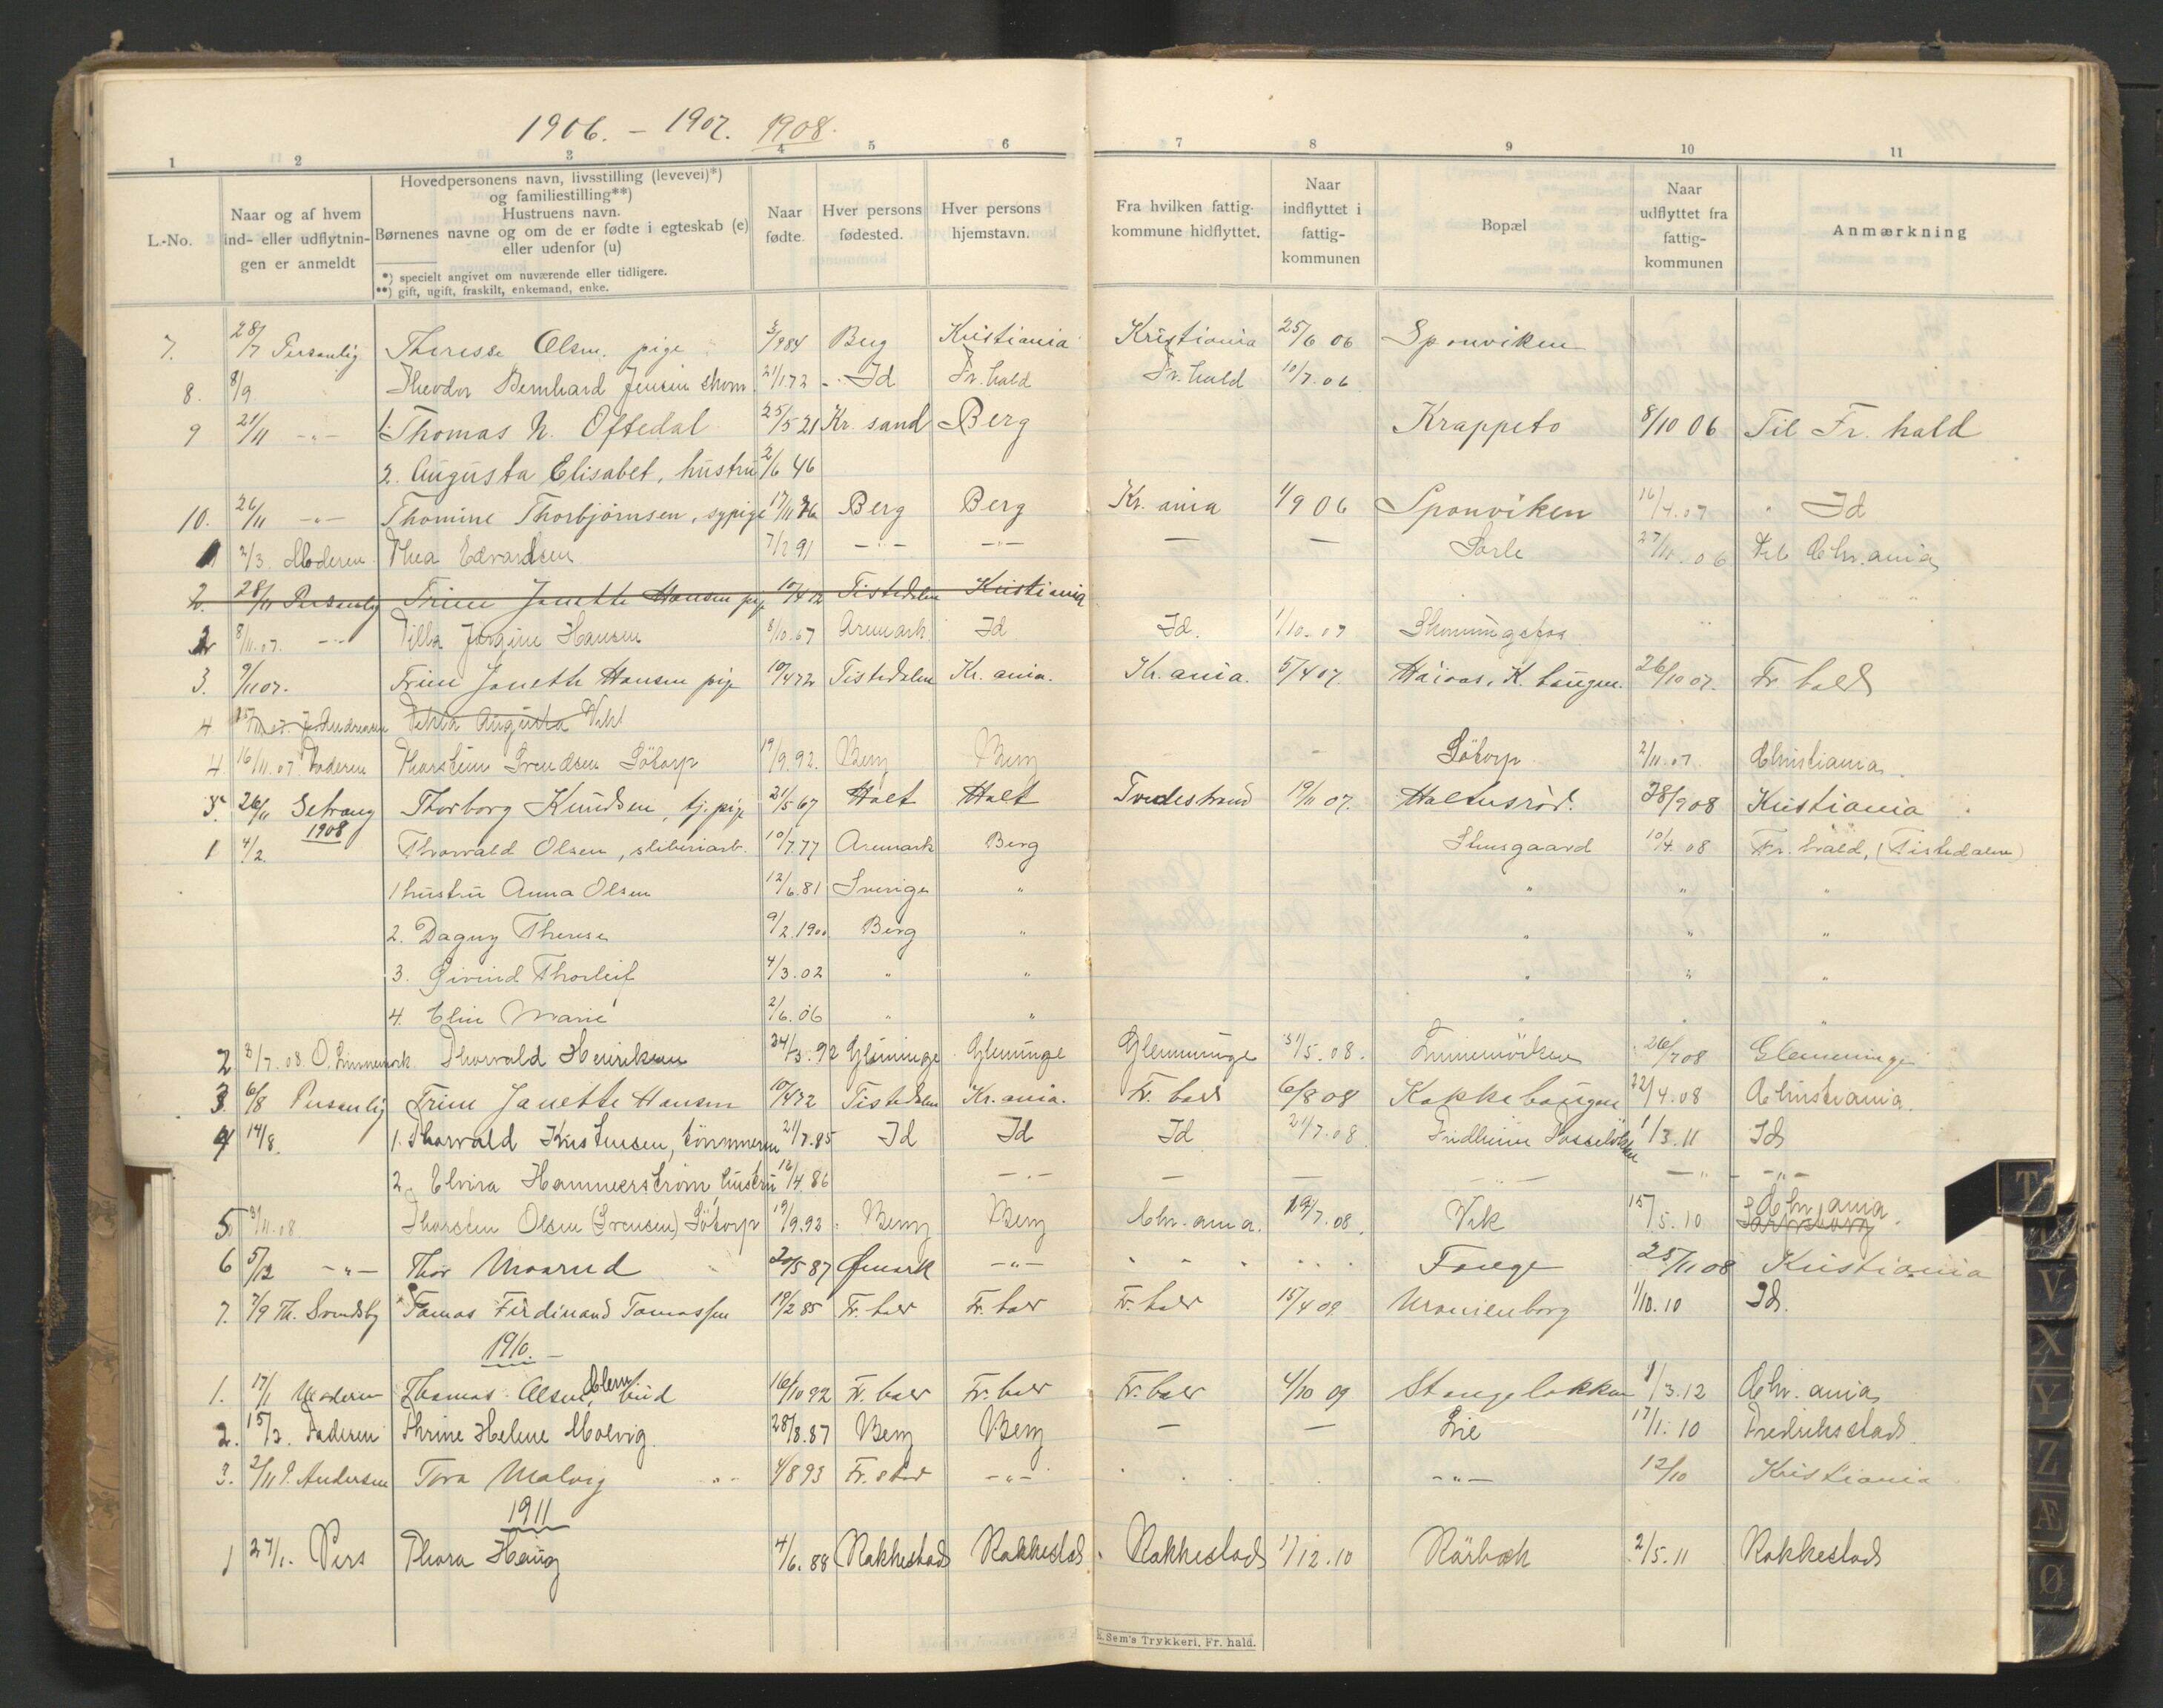 1906. - 1907. 1908.
1 2 3 4 5 6 7 8 9 10 11
L.-No. | Naar og af hvem ind- eller udflytningen er anmeldt | Hovedpersonens navn, livsstilling (levevei)*) og familiestilling**) Hustruens navn. Børnenes navne og om de er fødte i egteskab (e) eller udenfor (u) *) specielt angivet om nuværende eller tidligere. **) gift, ugift, fraskilt, enkemand, enke. | Naar fødte. | Hver persons fødested. | Hver persons hjemstavn. | Fra hvilken fattigkommune hidflyttet. | Naar indflyttet i fattigkommunen | Bopæl | Naar udflyttet fra fattigkommunen | Anmærkning
7. 28/7 Personlig Therese Olsen. pige 3/9 84 Berg Kristiania Kristiania 25/6 06 Sponviken
8. 8/9 Theodor Bernhard Jensen skom. 21/1.72 Id Fr. hald Fr. hald 10/7.06
9 21/11 -"- 1. Thomas N. Oftedal 25/5 21 Kr. sand Berg Krappeto 8/10 06 Til Fr. hald
2. Augusta Elisabet, hustru 2/6 46
10. 26/11 -"- Thomine Thorbjørnsen, sypige 17/11 76 Berg Berg Kr. ania 1/9 06 Sponviken 16/4.07 " Id
1 2/3. Moderen Thea Edvardsen 7/2 91 -"- -"- — — Sorle 27/11.06 til Chr. ania
2. 28/11 Personlig Trine Janette Hansen pige 10/4 72 Tistedalen Kristiania
2 8/11.07. -"- Tilla Jørgine Hansen 8/10.67 Aremark Id Id. 1/10-07 Skonningsfos
3. 9/11 07. Trine Janette Hansen pige 10/4 72 Tistedalen Kr. ania. Kr. ania. 5/4 07. K. baugen. 26/10 07. Fr hald
4 Andreasen Augusta
4 16/11.07. Faderen Thorstein Svendsen Søtorp 19/9.92. Berg Berg - - Søtorp 2/11.07. Christiania.
5. 26/11 Thorborg Knudsen, tj. pige 21/5 67 Holt Holt Tvedestrand 19/11 07. 28/9 08 Kristiania
1908
1 4/2. Thorvald Olsen, sliberiarb. 10/7.77 Aremark Berg Stensgaard 10/4.08 Fr. hald, (Tistedalen)
1 hustru Anna Olsen 12/6.81 Sverige " " " "
2. Dagny Therese 9/2.1900 Berg " " " "
3. Eivind Thorleif 4/3.02 " " " " "
4. Elin Marie 2/6.06 " " " "
2 3/7.08 O. Linnemark Thorvald Henriksen 24/3.92 Glemminge Glemminge Glemminge 31/5.08. 26/7 08 Glemminge
3. 6/8 Personlig Trine Janette Hansen 10/4 72 Tistedalen Kr. ania. Fr. hald 6/8 08 Kokkebaugen 22/4.08 Christiania.
4 14/8. 1. Thorvald Kristensen, tømmerm 21/7.85 Id Id Id 21/7.08 Fridheim 1/3.11 Id
2. Elvira Hammerstrøm hustru 12/4.86 -"- — — -"- -"- -"-
5 3/11.08. Thorsten Olsen (Svensen) Søtorp 19/9.92 Berg Berg Chr. ania. 19/7.08. Vik 15/5.10 Chr. ania. Sarpsborg
6 5/12 -"- Thor Moarud 20/5 87 Ømark -"- Fange 25/11 08 Kristiania
7. 7/9 Th. Svendsby Tomas Ferdinand Tomassen 19/2 85 Fr. hald Fr. hald Fr. hald 15/4 09 Uranienborg 1/10.10 Id.
1910.
1. 17/1 Moderen Thomas Olsen, Clem. bud 16/10 92 Fr. hald Fr. hald Fr. hald 4/10 09 Stangeløkken 1/3.12 Chr. ania
2. 15/3. Faderen Thrine Helene Molvig 28/8.87 Berg Berg — — Lie 17/1.10 Fredriksstad
3. 2/11 P. Andersen Tora Molvig 4/8 93 Fr. stad -"- -"- 12/10 Kristiania
1911
1 27/1. Pers Thora Haug 4/6. 88 Rakkestad Rakkestad Rakkestad 1/12.10 Rørbæk 2/5.11 Rakkestad
E. Sem's Trykkeri, Fr. hald.
T
V
X
Y
Z
Æ
Ø